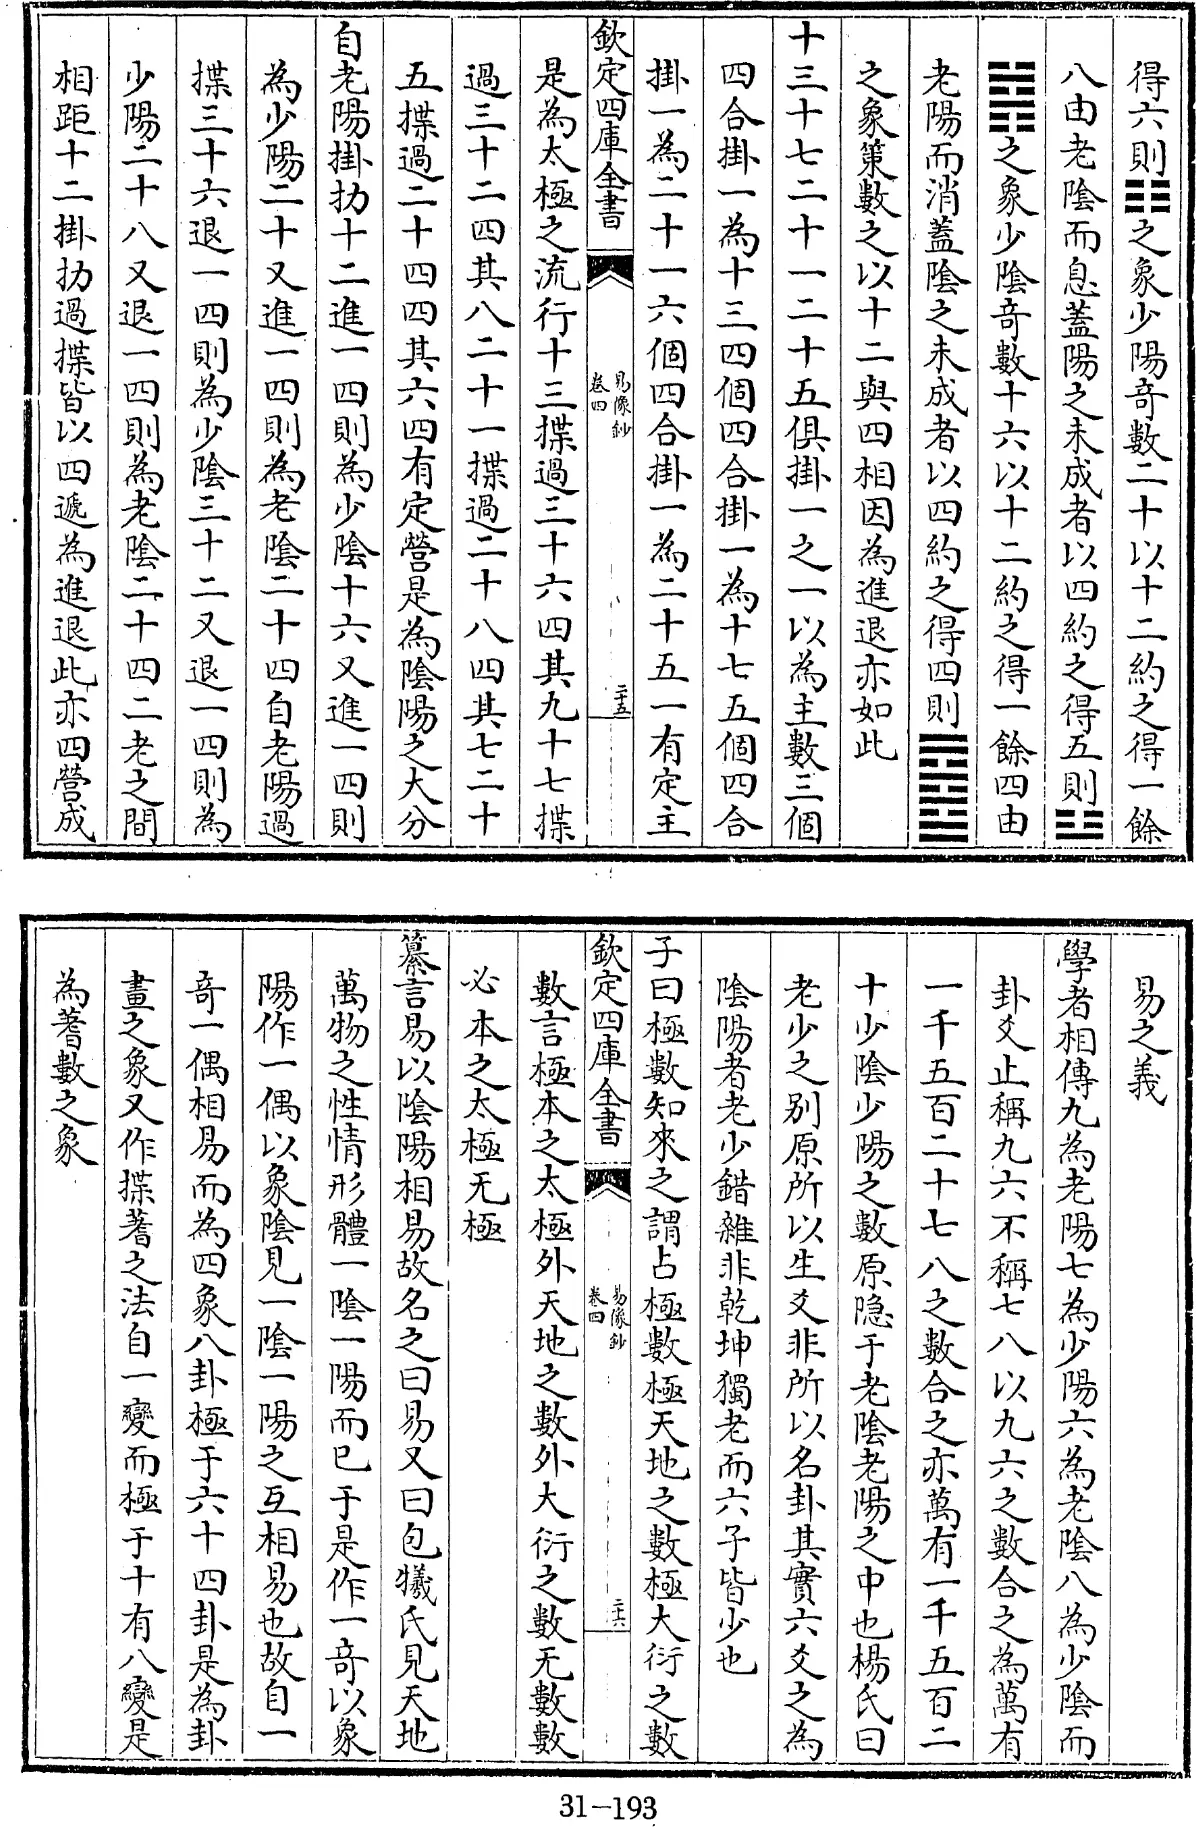 得六則☷之象少陽奇數二十以十二約之得一餘
八由老陰而息蓋陽之未成者以四約之得五則☳
☵☶之象少陰奇數十六以十二約之得一餘四由
老陽而消蓋陰之未成者以四約之得四則☴☲☱
之象策數之以十二與四相因為進退亦如此
十三十七二十一二十五俱掛一之一以為主數三個
四合掛一為十三四個四合掛一為十七五個四合
掛一為二十一六個四合掛一為二十五一有定主
欽定四庫全書
易像鈔
卷四
二十五
是為太極之流行十三揲過三十六四其九十七揲
過三十二四其八二十一揲過二十八四其七二十
五揲過二十四四其六四有定營是為陰陽之大分
自老陽掛扐十二進一四則為少陰十六又進一四則
為少陽二十又進一四則為老陰二十四自老陽過
揲三十六退一四則為少陰三十二又退一四則為
少陽二十八又退一四則為老陰二十四二老之間
相距十二掛扐過揲皆以四遞為進退此亦四營成
易之義
學者相傳九為老陽七為少陽六為老陰八為少陰而
卦爻止稱九六不稱七八以九六之數合之為萬有
一千五百二十七八之數合之亦萬有一千五百二
十少陰少陽之數原隐于老陰老陽之中也楊氏曰
老少之別原所以生爻非所以名卦其實六爻之為
陰陽者老少錯雜非乾坤獨老而六子皆少也
子曰極數知來之謂占極數極天地之數極大衍之數
欽定四庫全書
易像鈔
卷四
二十六
數言極本之太極外天地之數外大衍之數无數數
必本之太極无極
纂言易以陰陽相易故名之曰易又曰包犧氏見天地
萬物之性情形體一陰一陽而已于是作一奇以象
陽作一偶以象陰見一陰一陽之互相易也故自一
奇一偶相易而為四象八卦極于六十四卦是為卦
畫之象又作揲蓍之法自一變而極于十有八變是
為蓍數之象
31-193